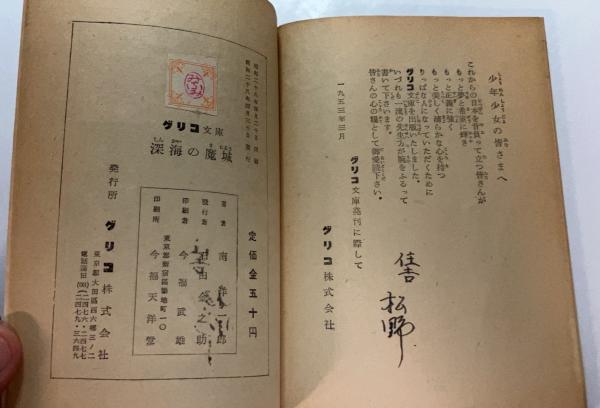 少年少女の皆さまへ
これからの日本を背負って立つ皆さんが
もっと夢と希望に輝き
もっと正義に強く
もっと美しく清らかな心を持つ
りっぱな人になっていただくために
グリコ文庫を出版いたしました。
いづれも一流の先生方が腕をふるって
書いて下さいます。
皆さんの心の糧として御愛読下さい。
一九五三年三月
グリコ文庫発刊に際して
グリコ株式会社
松野
昭和二十八年四月二十日印刷
グリコ文庫
深海の魔城
定価金五十円
著者 南洋一郎
発行者
印刷者 今福武雄
東京都新宿區築地町一〇
印刷所 今福天洋堂
発行所 グリコ株式会社
東京都大田區西六郷三ノ二